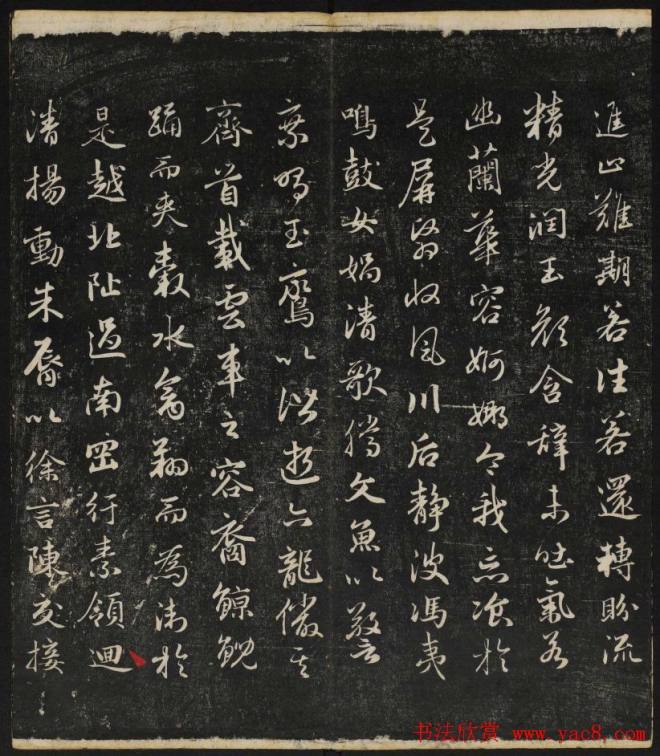 進止難期若往若還轉盼流
精光潤玉顏含辭未吐氣若
幽蘭華容婀娜令我忘飡於
是屏翳收風川后靜波馮夷
鳴鼓女媧清歌騰文魚以警
乘鳴玉鸞以偕逝六龍儼其
齊首載雲車之容裔鯨鯢
踊而夾轂水禽翔而為衛於
是越北沚過南岡紆素領迴
清揚動朱脣以徐言陳交接
书法欣赏 www.yac8.com